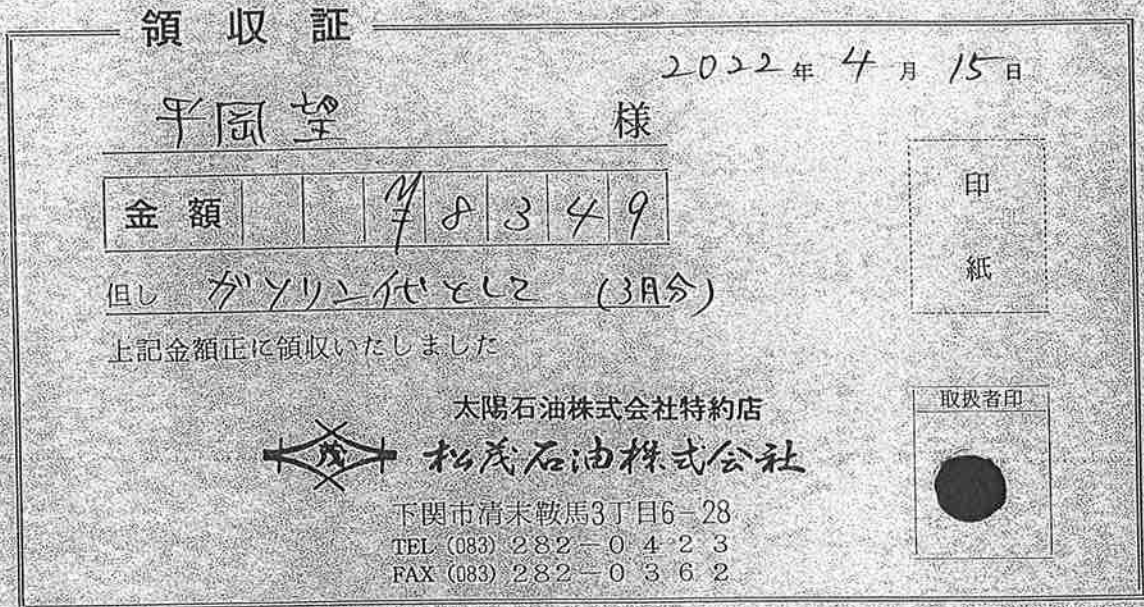 領収証
2022年4月15日
平岡望 様
金額 ¥8349
但し ガソリン代として (3月分)
上記金額正に領収いたしました
印紙
太陽石油株式会社特約店
茂 松茂石油株式会社
取扱者印
下関市清末鞍馬3丁目6-28
TEL (083) 282-0423
FAX (083) 282-0362